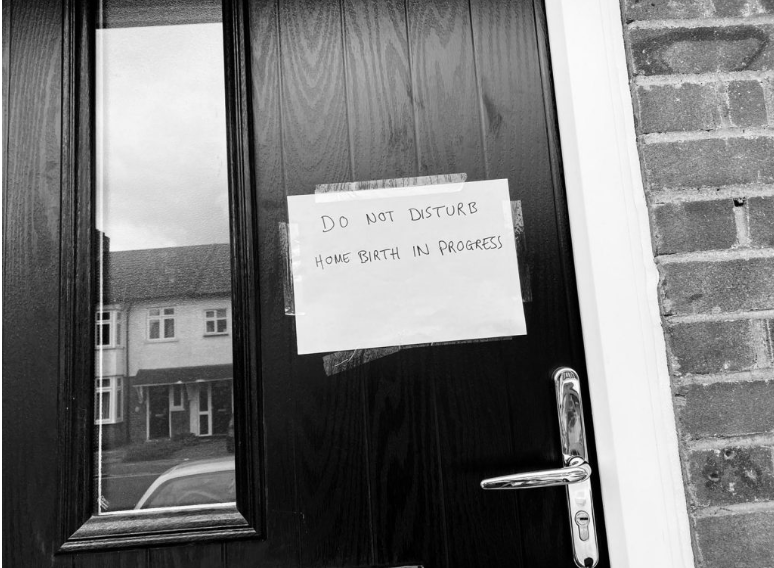 DO NOT DISTURB
HOME BIRTH IN PROGRESS